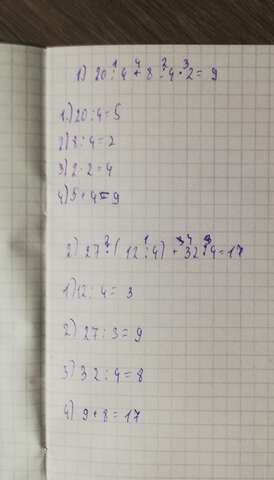 1) 20 : 4 + 8 : 4 · 2 = 9
1) 20 : 4 = 5
2) 8 : 4 = 2
3) 2 · 2 = 4
4) 5 + 4 = 9
2) 27 : ( 12 : 4 ) + 32 : 4 = 17
1) 12 : 4 = 3
2) 27 : 3 = 9
3) 32 : 4 = 8
4) 9 + 8 = 17